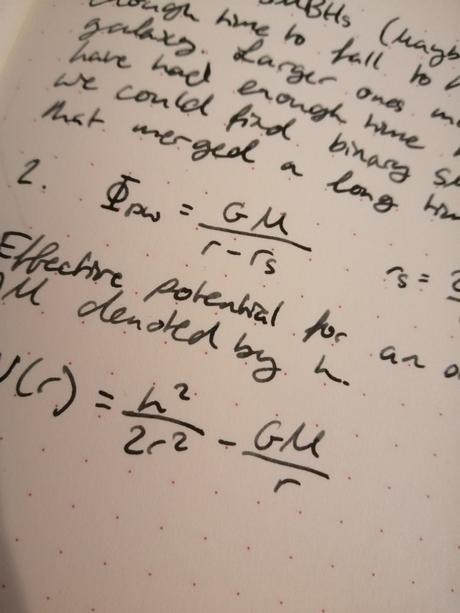 enough time to fall to
galaxy. Larger ones
have had enough time
we could find binary
that merged a long
2. Φpw = GM / (r - rs) rs =
Effective potential for an
denoted by h.
(r) = h² / 2r² - GM / r